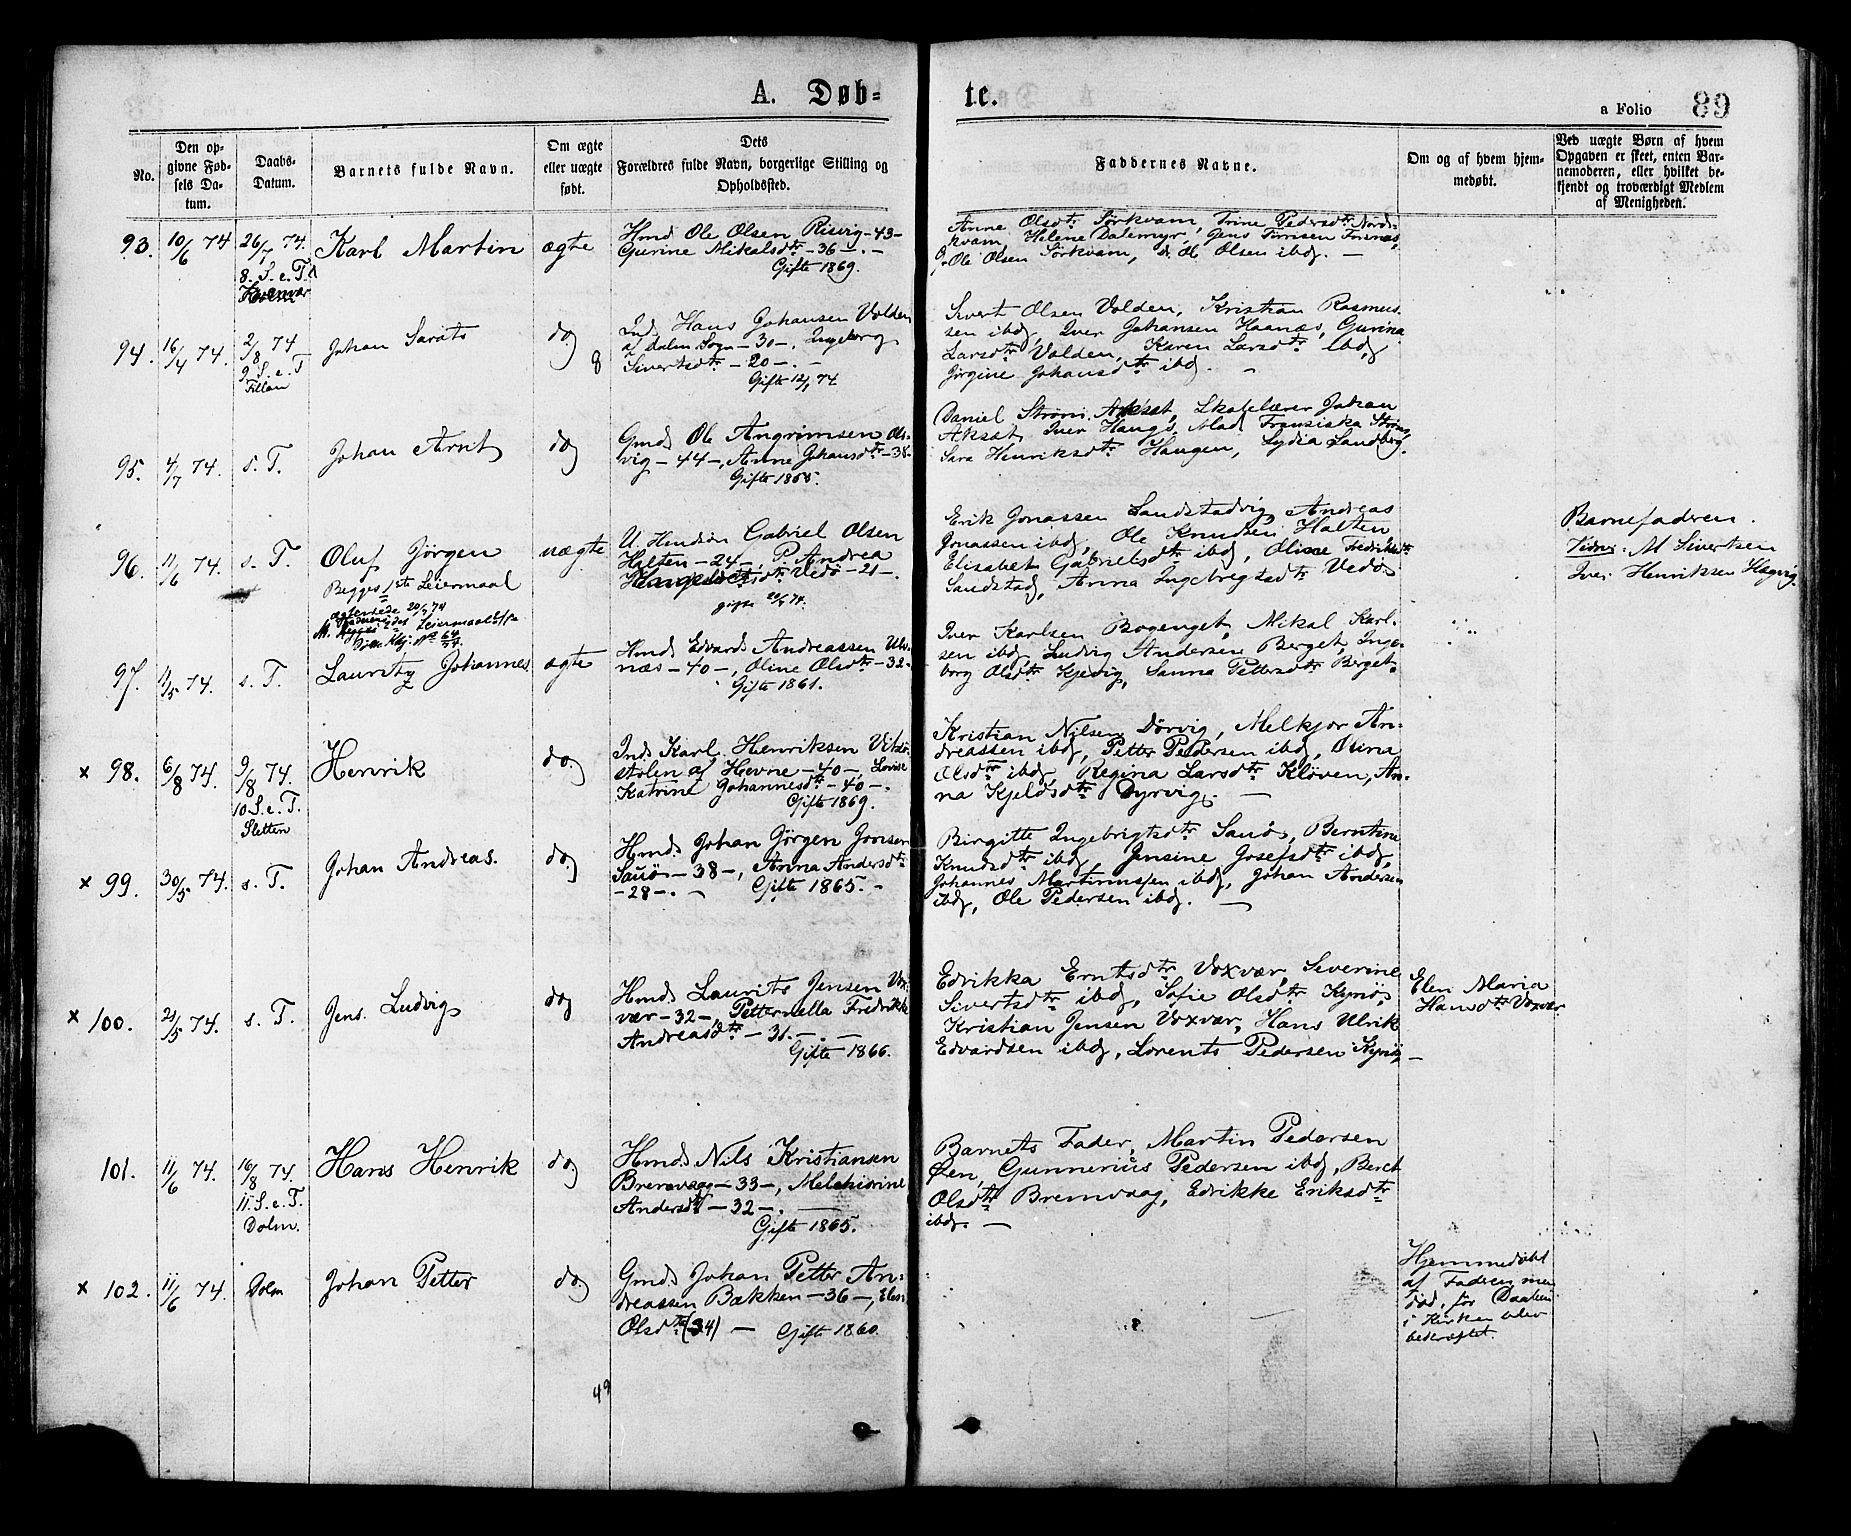 A. Døb-
te.
a Folio 89
No.
Den op-
givne Fød-
sels Da-
tum.
Daabs-
Datum.
Barnets fulde Navn.
Om ægte
eller uægte
født.
Dets
Forældres fulde Navn, borgerlige Stilling og
Opholdssted.
Faddernes Navne.
Om og af hvem hjem-
medøbt.
Ved uægte Børn af hvem
Opgaven er skeet, enten Bar-
nemoderen, eller hvilket be-
kjendt og troværdigt Medlem
af Menigheden.
93. 10/6 74 26/7 74. Karl Martin ægte
8. S. e. T.
Hmd Ole Olsen Risvig - 43 -
Gurine Mikalsdtr - 36 -. -
Gifte 1869.
Anne Olsdtr Sörkvam, Trine Pedersdtr Nord-
kvam, Helene Dalemyr, Jens Tönsen
Ole Olsen Sörkvam, Ole Olsen ibd. -
94. 16/4 74. 2/8 74 Johan Sarats do
9. S. e. T
Fillan
8
Ind. Hans Johansen Volden
af Dalm Sogn - 30 -, Ingeborg
Sivertsdtr - 20 -. -
Gifte 12/1 74.
Sivert Olsen Volden, Kristian Rasmus-
sen ibd, Iver Johansen Haanæs, Gurina
Larsdtr Volden, Karen Larsdtr ibd,
Jörgine Johansdtr ibd. -
95. 4/7 74. s. T. Johan Arnt do
Gmd Ole Angrimsen Ols-
vig - 44 -, Anne Johansdtr - 38 -
Gifte 1865.
Daniel Ström Aksat, Skolelærer Johan
Aksat, Iver Haugs, Mad. Fransiska Ström,
Sara Henriksdtr Haugen, Lydia Sandberg.
96. 11/6 74. s. T. Oluf Jörgen uægte
Begges 1ste Leiermaal
ægteviede 20/9 74
U. Hmdsön Gabriel Olsen
Halten - 24 -, P. Andrea
Vedö - 21 -.
gifte 20/9 74.
Erik Jonassen Sandstadvig, Andreas
Jonassen ibd, Ole Knudsen Halten
Elisabet Gabrielsdtr ibd, Olisse Fredriksdtr
Sandstad, Anna Ingebrigtsdtr Vedö
Barnefaderen.
M Sivertsen
Iver Henriksen Hægvig.
97. 11/5 74. s. T. Lauritz Johannes ægte
Hmd Edvard Andreassen Uls-
næs - 40 -, Oline Olsdtr - 32 -
Gifte 1861.
Iver Karlsen Bogenget, Mikal Karl-
sen ibd, Ludvig Andersen Berget, Inge-
borg Olsdtr Kjevig, Sanna Pettersdtr Berget.
x 98. 6/8 74. 9/8 74. Henrik do.
10. S. e. T.
Sletten
Ind. Karl Henriksen Vikso-
stolen af Hevne - 40 -, Lovise
Katrine Johannesdtr - 40 -.
Gifte 1869.
Kristian Nilsen Dörvig, Melkjor An-
dreassen ibd, Petter Pedersen ibd, Olina
Olsdtr ibd, Regina Larsdtr Klöven, An-
na Kjeldsdtr Dyrvig. -
x 99. 30/5 74. s. T. Johan Andreas. do
Hmd. Johan Jörgen Jonsen
Sauö - 38 -, Anna Andersdtr
- 28 -. - Gifte 1865. -
Birgitte Ingebrigtsdtr Sauö, Berntine
Knudsdtr ibd, Jensine Josefsdtr ibd,
Johannes Martinussen ibd, Johan Andersen
ibd, Ole Pedersen ibd. -
x 100. 21/5 74. s. T. Jens Ludvig do
Hmd. Laurits Jensen Vox-
vær - 32 -, Petternella Fredrikke
Andreasdtr - 31 -. -
Gifte 1866.
Edrikka Erntsdtr Voxvær, Siverine
Sivertsdtr ibd, Sofie Olsdtr Kyrö,
Kristian Jensen Voxvær, Hans Ulrik
Edvardsen ibd, Lorents Pedersen Kyrö, -
Elen Maria
Hansdtr Voxvær
101. 11/6 74. 16/8 74. Hans Henrik do
11. S. e. T.
Dolm.
Hmd. Nils Kristiansen
Bremvaag - 33 -, Melchiorine
Andersdtr - 32 -. -
Gifte 1865.
Barnets Fader, Martin Pedersen
Øen, Gunnerius Pedersen ibd, Beret
Olsdtr Bremvaag, Edrikke Eriksdtr
ibd. -
x 102. 11/6 74. Dolm Johan Petter do.
Gmd. Johan Petter An-
dreassen Bækken - 36 -, Elen
Olsdtr (34) - Gifte 1860.
Hjemmedöbt
af Faderen, men
död, för Daaben
i Kirken blev
bekræftet.
49